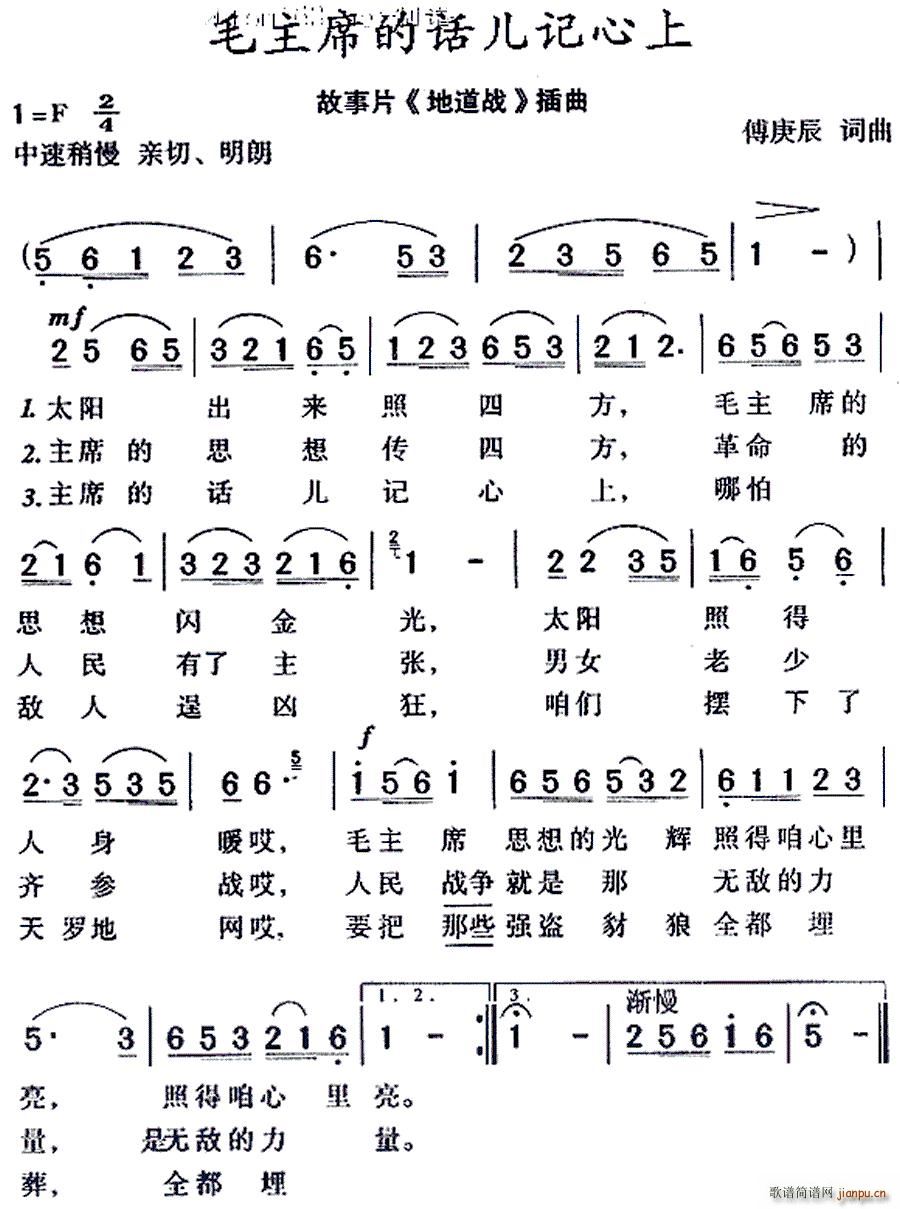 毛主席的话儿记心上
故事片《地道战》插曲
1=F 2/4
傅庚辰 词曲
中速稍慢 亲切、明朗
(5 6 1 2 3 | 6· 5 3 | 2 3 5 6 5 | 1 - ) |
mf
2 5 6 5 | 3 2 1 6 5 | 1 2 3 6 5 3 | 2 1 2. | 6 5 6 5 3 |
1.太阳 出 来 照 四 方, 毛主 席的
2.主席的 思 想 传 四 方, 革命 的
3.主席的 话 儿 记 心 上, 哪怕
2 1 6 1 | 3 2 3 2 1 6 | 2 1 - | 2 2 3 5 | 1 6 5 6 |
思 想 闪 金 光, 太阳 照 得
人 民 有了 主 张, 男女 老 少
敌 人 逞 凶 狂, 咱们 摆 下了
f
2· 3 5 3 5 | 6 6· 5 | 1 5 6 1 | 6 5 6 5 3 2 | 6 1 1 2 3 |
人 身 暖哎, 毛主 席 思想的光 辉 照得咱心里
齐 参 战哎, 人民 战争就是 那 无敌的力
天 罗地 网哎, 要把 那些强盗 豺 狼 全都 埋
1. 2. 3. 渐慢
5· 3 | 6 5 3 2 1 6 | 1 - :| 1 - | 2 5 6 1 6 | 5 - ||
亮, 照得咱心 里 亮。
量, 是无敌的力 量。
葬, 全都 埋
歌谱简谱网 jianpu.cn